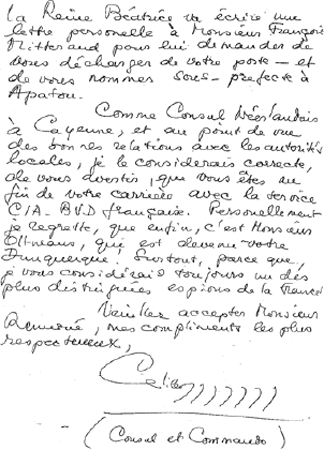 La Reine Béatrice va écrire une
lettre personelle à Monsieur François
Mitterand pour lui demander de
vous décharger de votre poste - et
de vous nommer sous-prefecte à
Apatou.
Comme Consul Néerlandais
à Cayenne, et au point de vue
des bonnes relations avec les autorités
locales, je le considerais correcte,
de vous avertis, que vous êtes au
fin de votre carriere avec la service
CIA-BVD française. Personellement
je regrette, que enfin, c'est Monsieur
Oltmans, qui est devenu votre
Dunquerque! Surtout, parce que,
je vous considérais toujours un des
plus distriguées espions de la France!
Veuillez accepter Monsieur
mes compliments les plus
respectueux,
(Consul et Commando)